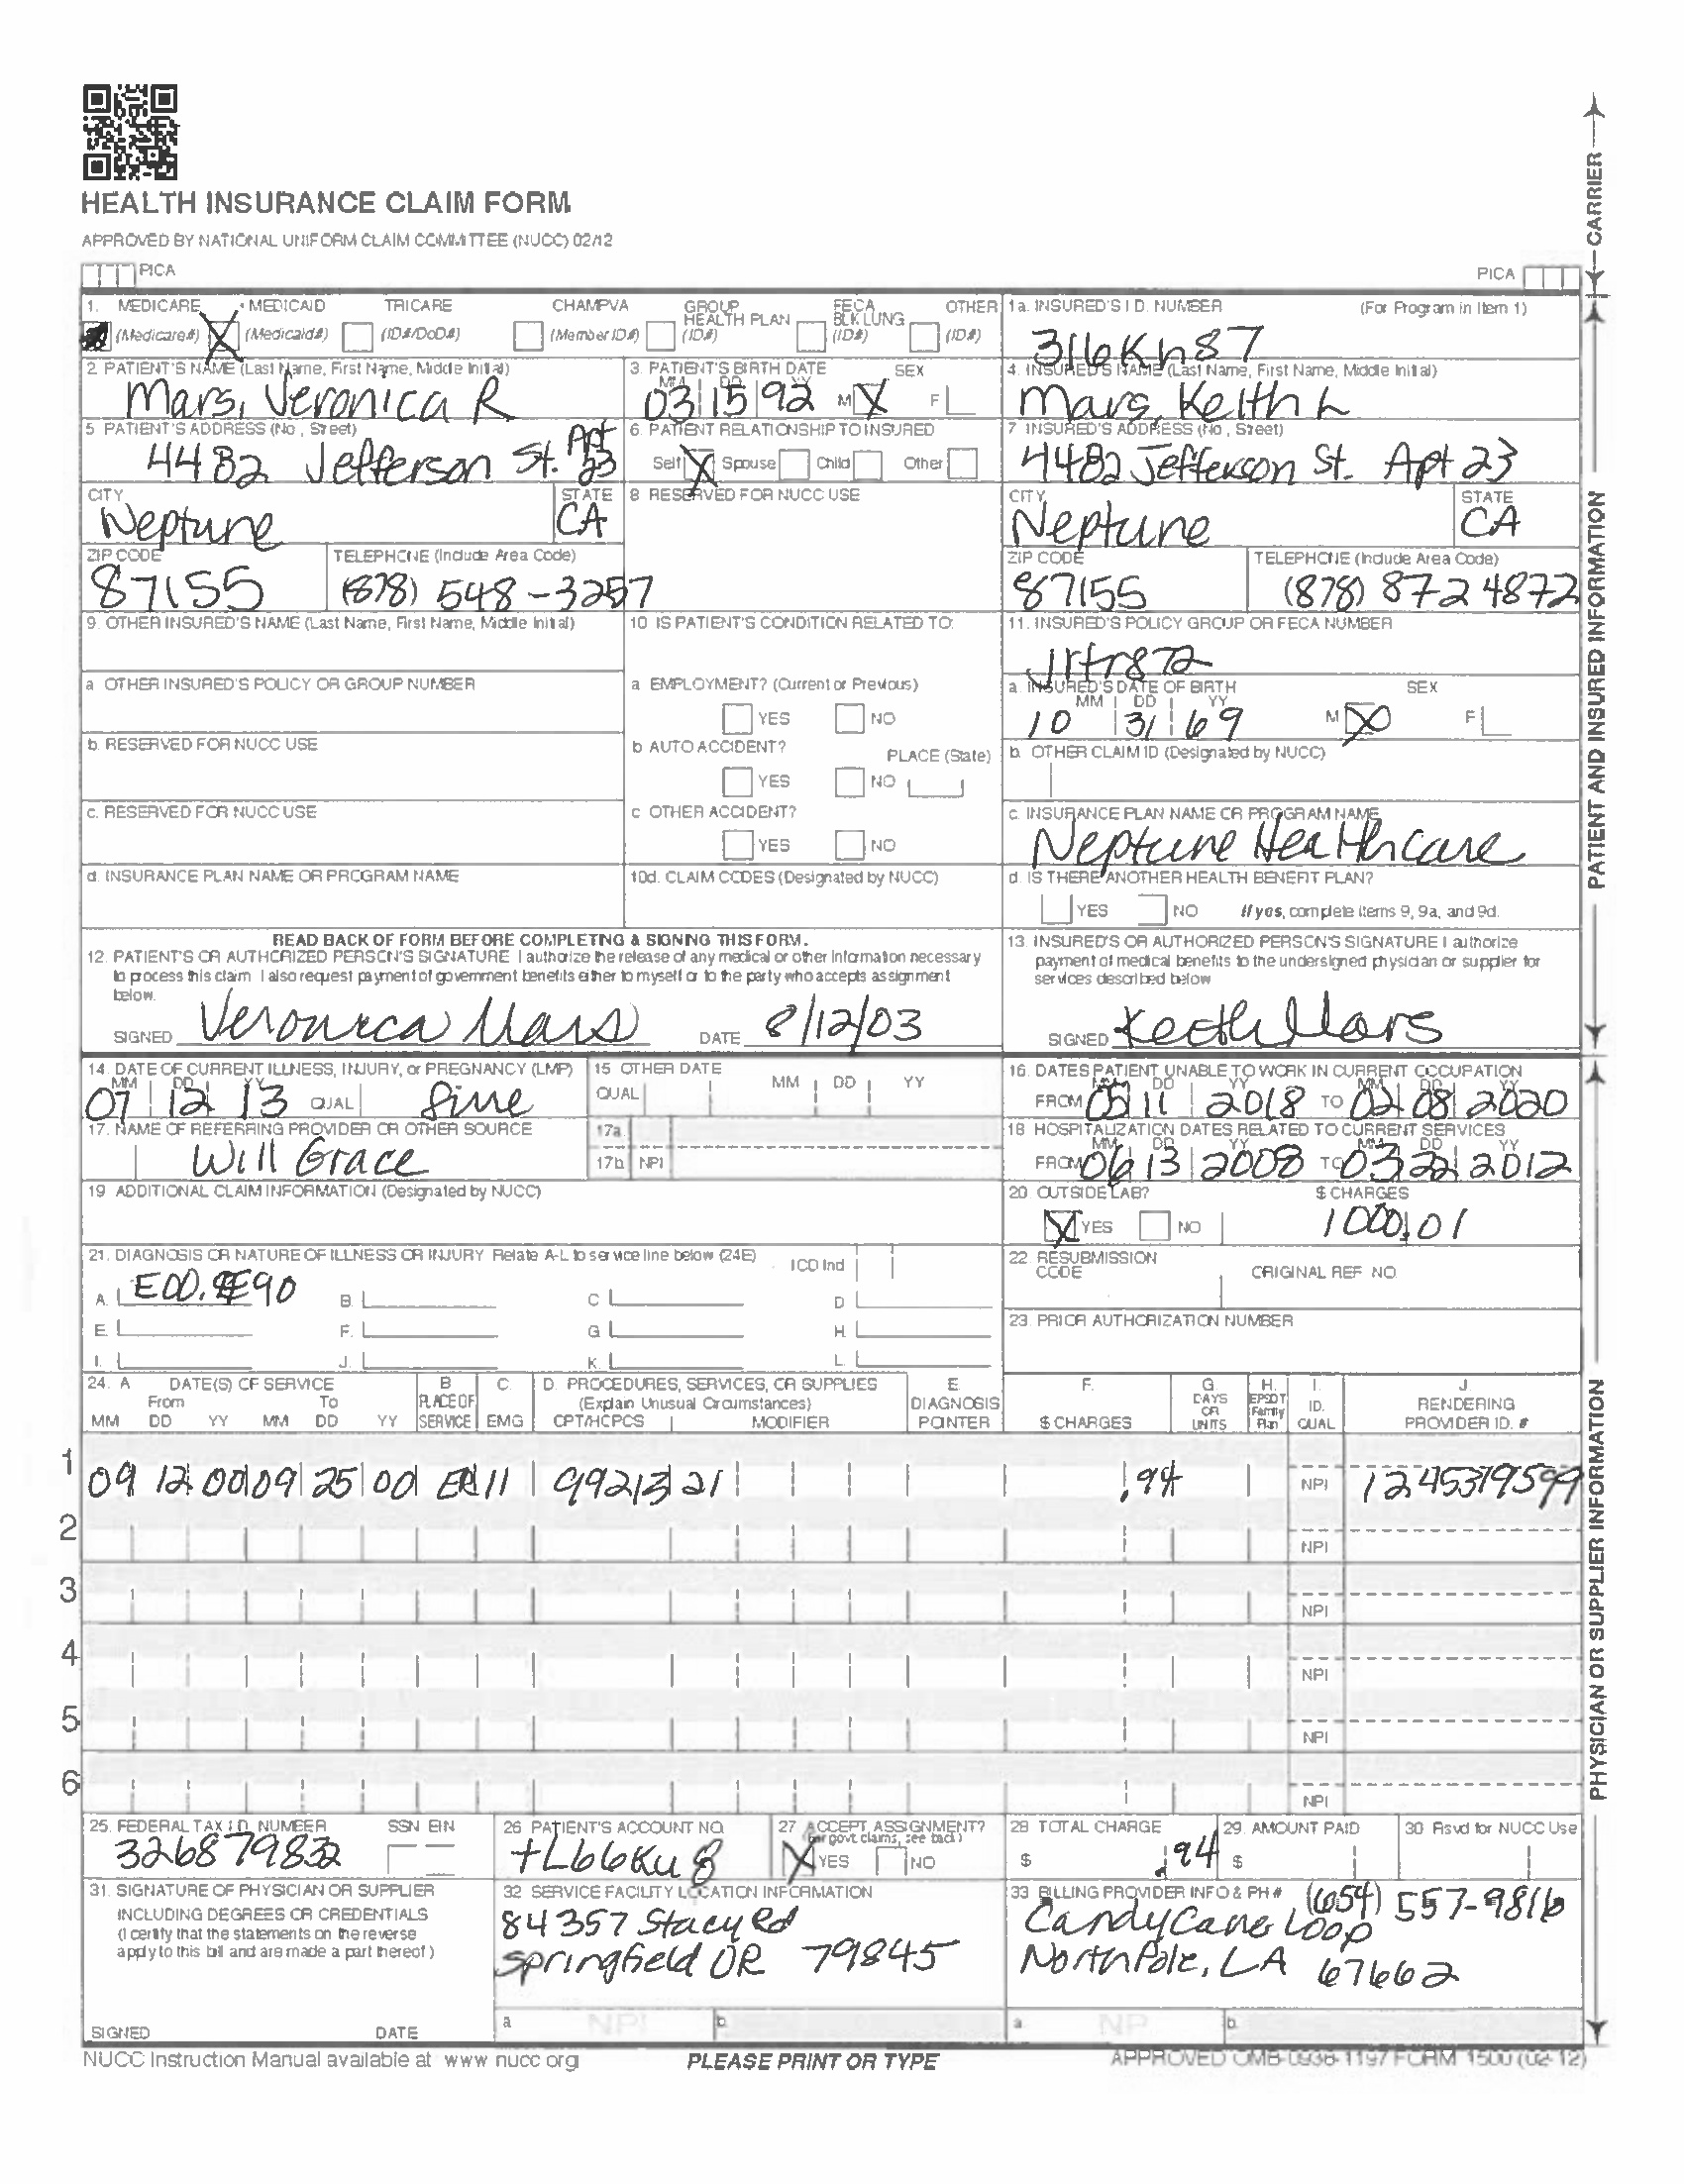 HEALTH INSURANCE CLAIM FORM
APPROVED BY NATIONAL UNIFORM CLAIM COMMITTEE (NUCC) 02/12
PICA
PICA
CARRIER
1. MEDICARE MEDICAID TRICARE CHAMPVA GROUP HEALTH PLAN FECA BLK LUNG OTHER
(Medicare#) X (Medicaid#) (ID#/DoD#) (Member ID#) (ID#) (ID#) (ID#)
1a. INSURED'S I.D. NUMBER (For Program in Item 1)
316Kh87
2. PATIENT'S NAME (Last Name, First Name, Middle Initial)
Mars, Veronica R
3. PATIENT'S BIRTH DATE SEX
MM DD YY
03 15 92 M X F
4. INSURED'S NAME (Last Name, First Name, Middle Initial)
Mars, Keith L
5. PATIENT'S ADDRESS (No., Street)
4482 Jefferson St. Apt 23
6. PATIENT RELATIONSHIP TO INSURED
Self X Spouse Child Other
7. INSURED'S ADDRESS (No., Street)
4482 Jefferson St. Apt 23
CITY STATE
Neptune CA
8. RESERVED FOR NUCC USE
CITY STATE
Neptune CA
ZIP CODE TELEPHONE (Include Area Code)
87155 (878) 548-3257
ZIP CODE TELEPHONE (Include Area Code)
87155 (878) 872 4872
9. OTHER INSURED'S NAME (Last Name, First Name, Middle Initial)
10. IS PATIENT'S CONDITION RELATED TO:
11. INSURED'S POLICY GROUP OR FECA NUMBER
a. OTHER INSURED'S POLICY OR GROUP NUMBER
a. EMPLOYMENT? (Current or Previous)
YES NO
a. INSURED'S DATE OF BIRTH SEX
MM DD YY
10 31 69 M X F
b. RESERVED FOR NUCC USE
b. AUTO ACCIDENT? PLACE (State)
YES NO
b. OTHER CLAIM ID (Designated by NUCC)
c. RESERVED FOR NUCC USE
c. OTHER ACCIDENT?
YES NO
c. INSURANCE PLAN NAME OR PROGRAM NAME
Neptune Healthcare
d. INSURANCE PLAN NAME OR PROGRAM NAME
10d. CLAIM CODES (Designated by NUCC)
d. IS THERE ANOTHER HEALTH BENEFIT PLAN?
YES NO If yes, complete items 9, 9a, and 9d.
READ BACK OF FORM BEFORE COMPLETING & SIGNING THIS FORM.
12. PATIENT'S OR AUTHORIZED PERSON'S SIGNATURE I authorize the release of any medical or other information necessary
to process this claim. I also request payment of government benefits either to myself or to the party who accepts assignment
below.
SIGNED Veronica Mars DATE 8/12/03
13. INSURED'S OR AUTHORIZED PERSON'S SIGNATURE I authorize
payment of medical benefits to the undersigned physician or supplier for
services described below.
SIGNED Keith Mars
PATIENT AND INSURED INFORMATION
14. DATE OF CURRENT ILLNESS, INJURY, or PREGNANCY (LMP)
MM DD YY
07 12 13 QUAL
15. OTHER DATE
QUAL MM DD YY
16. DATES PATIENT UNABLE TO WORK IN CURRENT OCCUPATION
MM DD YY MM DD YY
FROM 05 11 2018 TO 02 08 2020
17. NAME OF REFERRING PROVIDER OR OTHER SOURCE
Will Grace
17a.
17b. NPI
18. HOSPITALIZATION DATES RELATED TO CURRENT SERVICES
MM DD YY MM DD YY
FROM 06 13 2008 TO 03 22 2012
19. ADDITIONAL CLAIM INFORMATION (Designated by NUCC)
20. OUTSIDE LAB? $ CHARGES
X YES NO 1000.01
21. DIAGNOSIS OR NATURE OF ILLNESS OR INJURY Relate A-L to service line below (24E) ICD Ind.
A. B. C. D.
E. F. G. H.
I. J. K. L.
22. RESUBMISSION CODE ORIGINAL REF. NO.
23. PRIOR AUTHORIZATION NUMBER
24. A. DATE(S) OF SERVICE B. C. D. PROCEDURES, SERVICES, OR SUPPLIES E. F. G. H. I. J.
From To PLACE OF (Explain Unusual Circumstances) DIAGNOSIS DAYS OR EPSDT Family ID. RENDERING
MM DD YY MM DD YY SERVICE EMG CPT/HCPCS MODIFIER POINTER $ CHARGES UNITS Plan QUAL. PROVIDER ID. #
1 09 12 00 09 25 00 11 99213 21 .94 NPI 1245319599
2 NPI
3 NPI
4 NPI
5 NPI
6 NPI
PHYSICIAN OR SUPPLIER INFORMATION
25. FEDERAL TAX I.D. NUMBER SSN EIN
26. PATIENT'S ACCOUNT NO.
27. ACCEPT ASSIGNMENT?
(For govt. claims, see back)
X YES NO
28. TOTAL CHARGE
$ .94
29. AMOUNT PAID
$
30. Rsvd for NUCC Use
31. SIGNATURE OF PHYSICIAN OR SUPPLIER
INCLUDING DEGREES OR CREDENTIALS
(I certify that the statements on the reverse
apply to this bill and are made a part thereof.)
SIGNED DATE
32. SERVICE FACILITY LOCATION INFORMATION
84357 Stacy Rd
Springfield OR 79845
a. NPI b.
33. BILLING PROVIDER INFO & PH # (654) 557-9816
Candy Cane Loop
North Pole, LA 67662
a. NPI b.
NUCC Instruction Manual available at: www.nucc.org
PLEASE PRINT OR TYPE
APPROVED OMB-0938-1197 FORM 1500 (02-12)